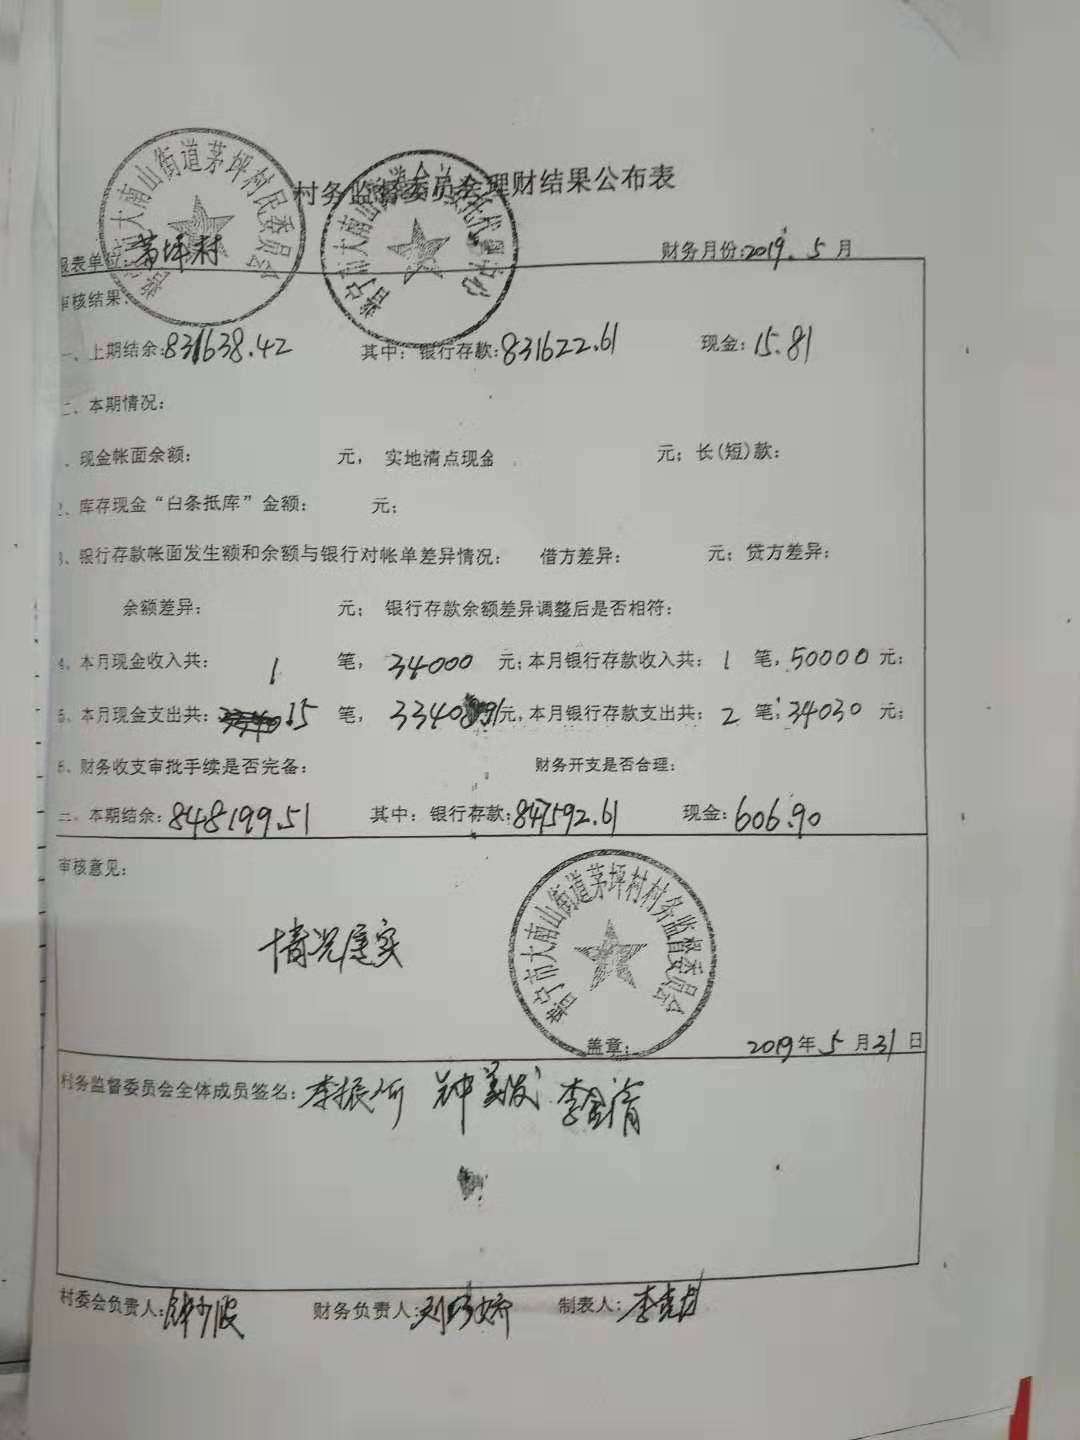 村务监督委员会理财结果公布表
报表单位:茅坪村 财务月份:2019.5月
审核结果:
一、上期结余:831638.42 其中: 银行存款:831622.61 现金:15.81
二、本期情况:
、现金帐面余额: 元, 实地清点现金 元; 长(短)款:
2、库存现金“白条抵库”金额: 元;
3、银行存款帐面发生额和余额与银行对帐单差异情况: 借方差异: 元; 贷方差异:
余额差异: 元; 银行存款余额差异调整后是否相符:
4、本月现金收入共: 1 笔, 34000 元;本月银行存款收入共: 1 笔,50000元;
5、本月现金支出共: 15 笔, 元,本月银行存款支出共: 2 笔;34030 元;
6、财务收支审批手续是否完备: 财务开支是否合理:
三、本期结余:848199.51 其中: 银行存款:847592.61 现金:606.90
审核意见:
情况属实
盖章:
2019年5月31日
村务监督委员会全体成员签名:李振河 钟美茂 李金清
村委会负责人: 财务负责人: 制表人:
普宁市大南山街道茅坪村民委员会
普宁市大南山街道
普宁市大南山街道茅坪村村务监督委员会